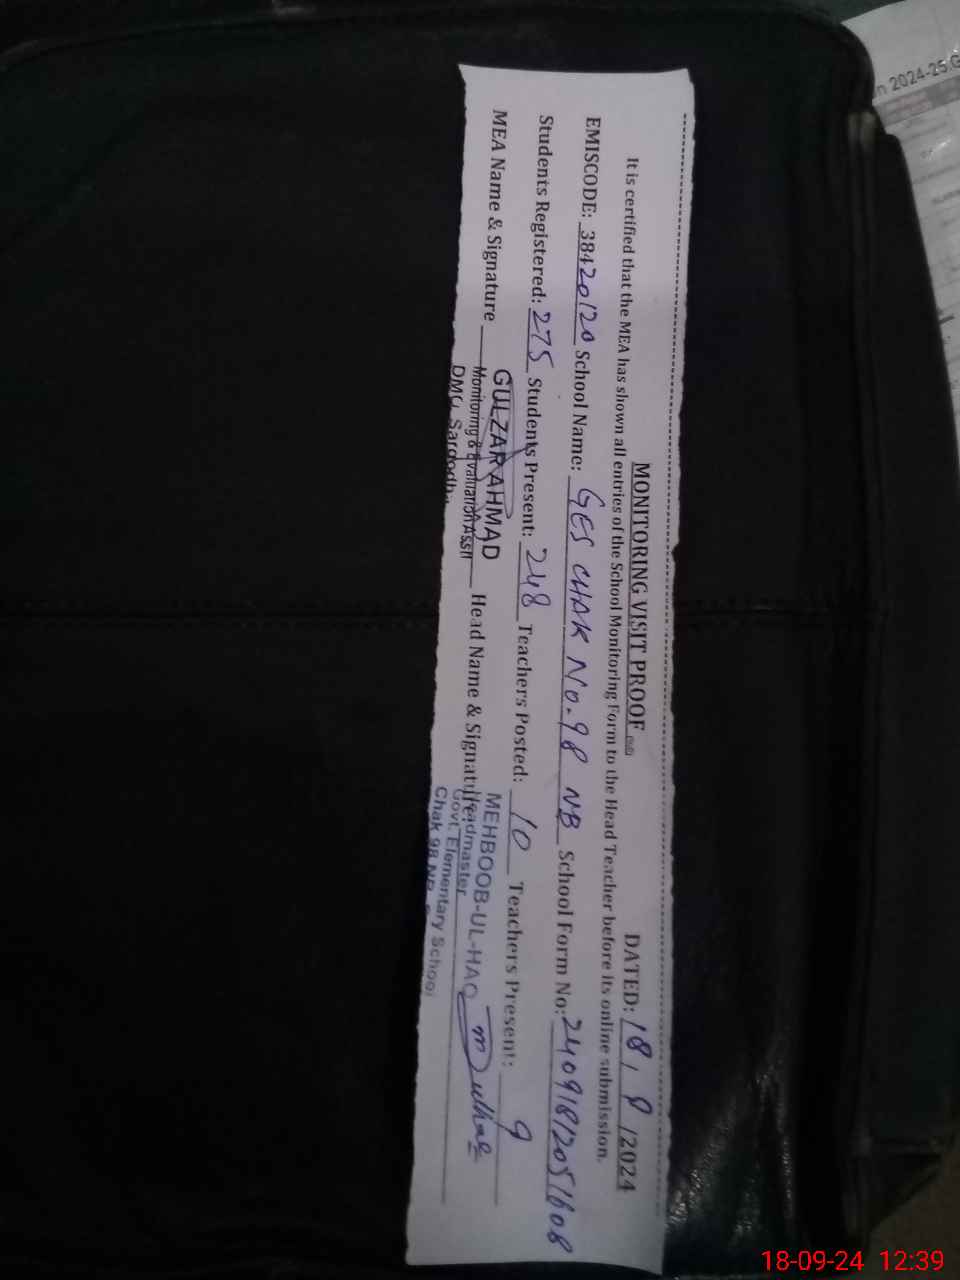 n 2024-25
MONITORING VISIT PROOF
DATED: 18/9/2024
It is certified that the MEA has shown all entries of the School Monitoring Form to the Head Teacher before its online submission.
EMISCODE: 38420120 School Name: GES CHAK No.98 NB School Form No: 24091812051608
Students Registered: 275 Students Present: 248 Teachers Posted: 10 Teachers Present: 9
MEA Name & Signature Head Name & Signature:
GULZAR AHMAD
Monitoring & Evaluation Asstt
DMO, Sargodh
MEHBOOB-UL-HAQ
Headmaster
Govt. Elementary School
Chak 98 NB
18-09-24 12:39